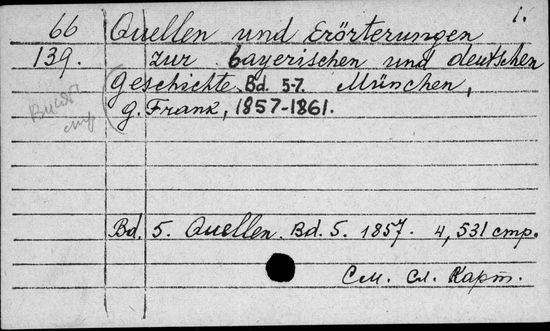 1.
66 Quellen und Erörterungen
139. zur bayerischen und deutschen
Geschichte. Bd. 5-7. München,
g. Frank, 1857-1861.
Bd. 5. Quellen. Bd. 5. 1857. 4, 531 стр.
См. сл. Карт.